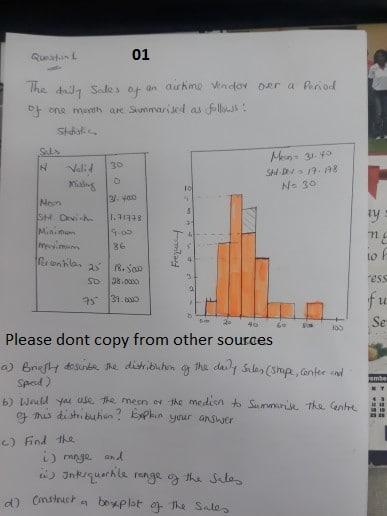 Question 1
01
The daily sales of an airtime vendor over a Period
of one month are summarised as follows:
Statistics
Sales
N Valid 30
Missing 0
Mean 31.400
Std. Deviatn 1.71778
Minimum 9.00
Maximum 86
Percentiles 25 18.5000
50 28.0000
75 39.0000
Mean= 31.40
Std. Dev = 17.178
N= 30
Frequency
10
9
8
6
5
4
3
2
1
0
20
40
60
100
Please dont copy from other sources
a) Briefly describe the distribution of the daily sales (shape, center and
spread)
b) Would you use the mean or the median to summarise the centre
of this distribution? Explain your answer
c) Find the
i) range and
ii) Interquartile range of the sales
d) Construct a boxplot of the sales